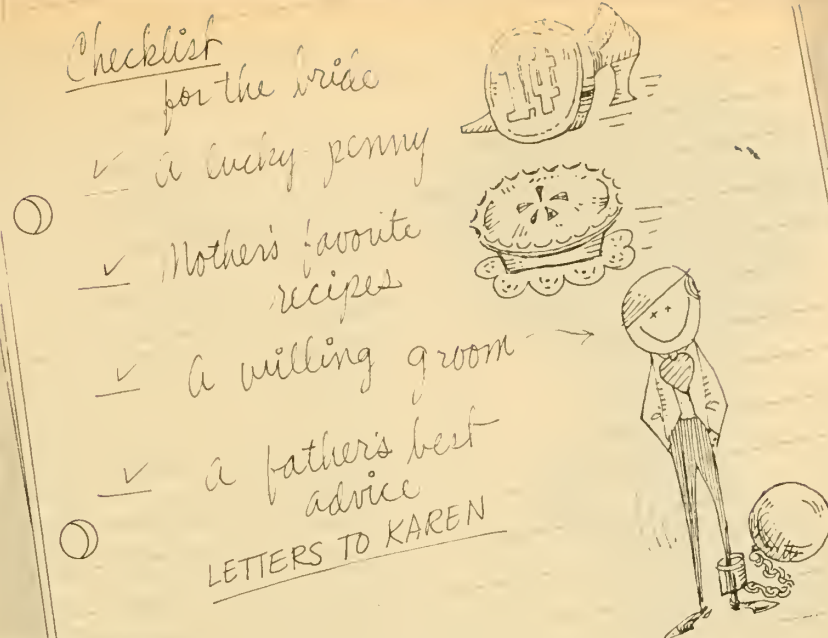 Checklist
for the bride
✓ A lucky penny
1¢
✓ Mother's favorite
recipes
✓ A willing groom
✓ A father's best
advice
LETTERS TO KAREN